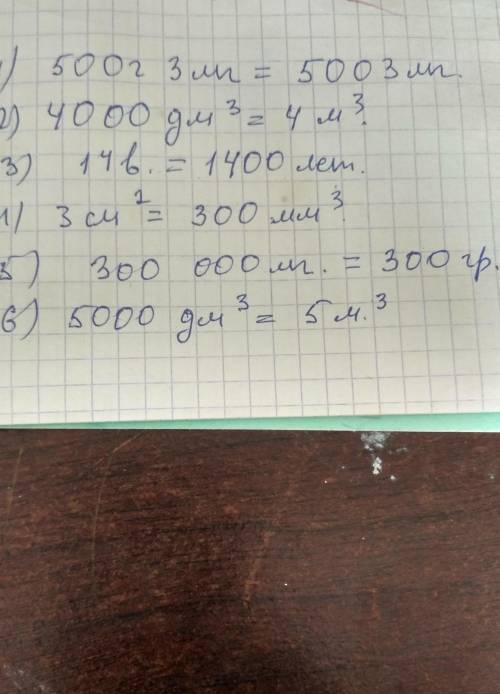 1) 500г 3 мг = 5003 мг.
2) 4000 дм³ = 4 м³.
3) 14 в. = 1400 лет.
4) 3 см² = 300 мм³.
5) 300 000 мг. = 300 гр.
6) 5000 дм³ = 5 м.³